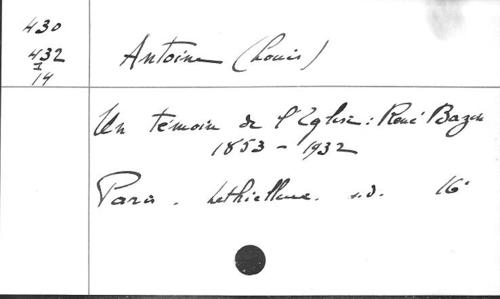 430
432
I
14
Antoine (Louis)
Un témoin de l'Eglise: René Bazin
1853 - 1932
Paris. Lethielleux. s.d. 16°